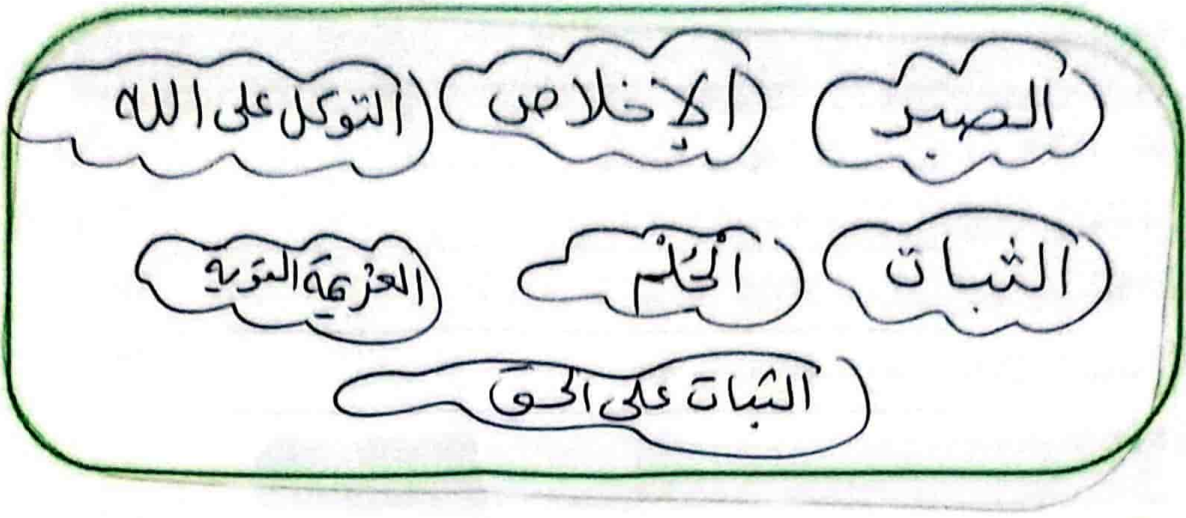 الصبر الإخلاص التوكل على الله
الثبات الحُلْم العزيمة القوية
الثبات على الحق